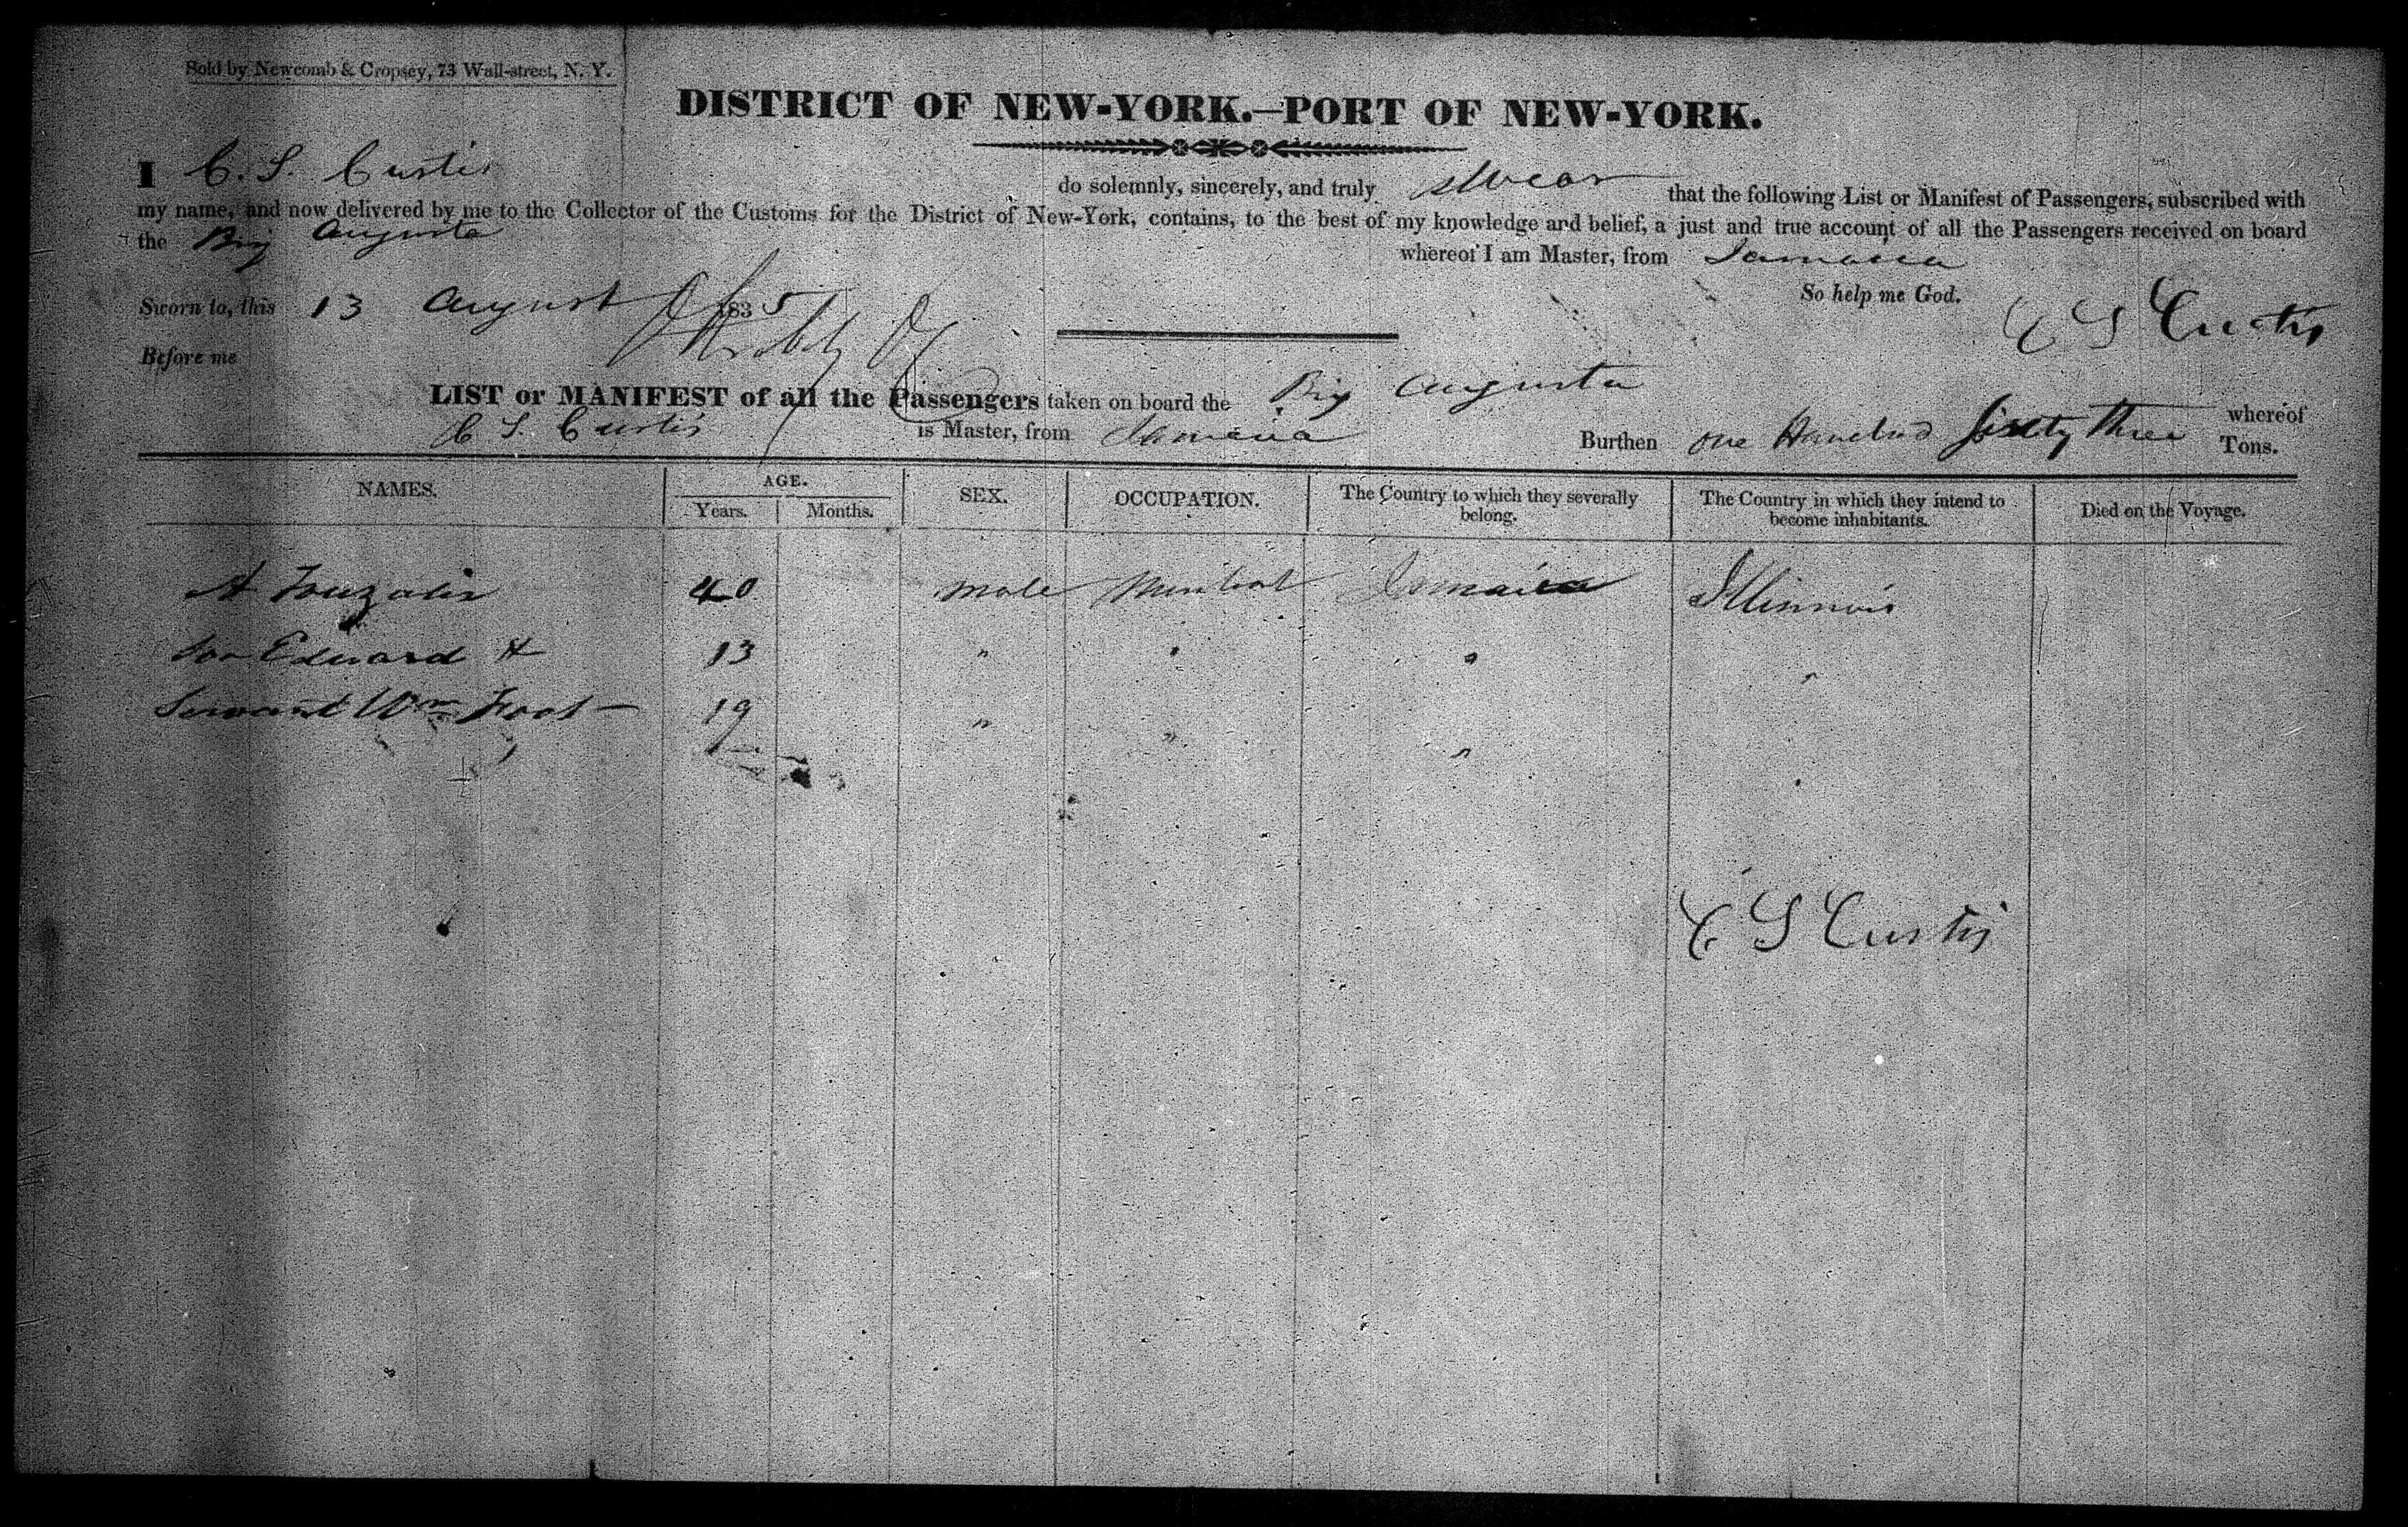 Sold by Newcomb & Cropsey, 73 Wall-street, N. Y.
DISTRICT OF NEW-YORK.—PORT OF NEW-YORK.
I C. S. Curtis do solemnly, sincerely, and truly swear that the following List or Manifest of Passengers, subscribed with
my name, and now delivered by me to the Collector of the Customs for the District of New-York, contains, to the best of my knowledge and belief, a just and true account of all the Passengers received on board
the Brig Augusta whereof I am Master, from Jamaica
So help me God.
Sworn to, this 13 August 1835
C S Curtis
Before me
LIST or MANIFEST of all the Passengers taken on board the Brig Augusta whereof
C S. Curtis is Master, from Jamaica Burthen one Hundred Sixty three Tons.
NAMES. AGE. SEX. OCCUPATION. The Country to which they severally belong. The Country in which they intend to become inhabitants. Died on the Voyage.
Years. Months.
A 40 male Jamaica Illinnois
Son Edward A 13 " " " "
Servant Wm Foot 19 " " " "
C S Curtis